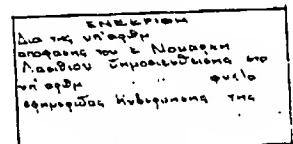 ΕΝΕΚΡΙΘΗ
Δια της υπ' αριθμ
αποφασης του κ Νομαρχη
Λασιθιου δημοσιευθεισης στο
υπ' αριθμ . . φυλλο
εφημεριδας Κυβερνησης της